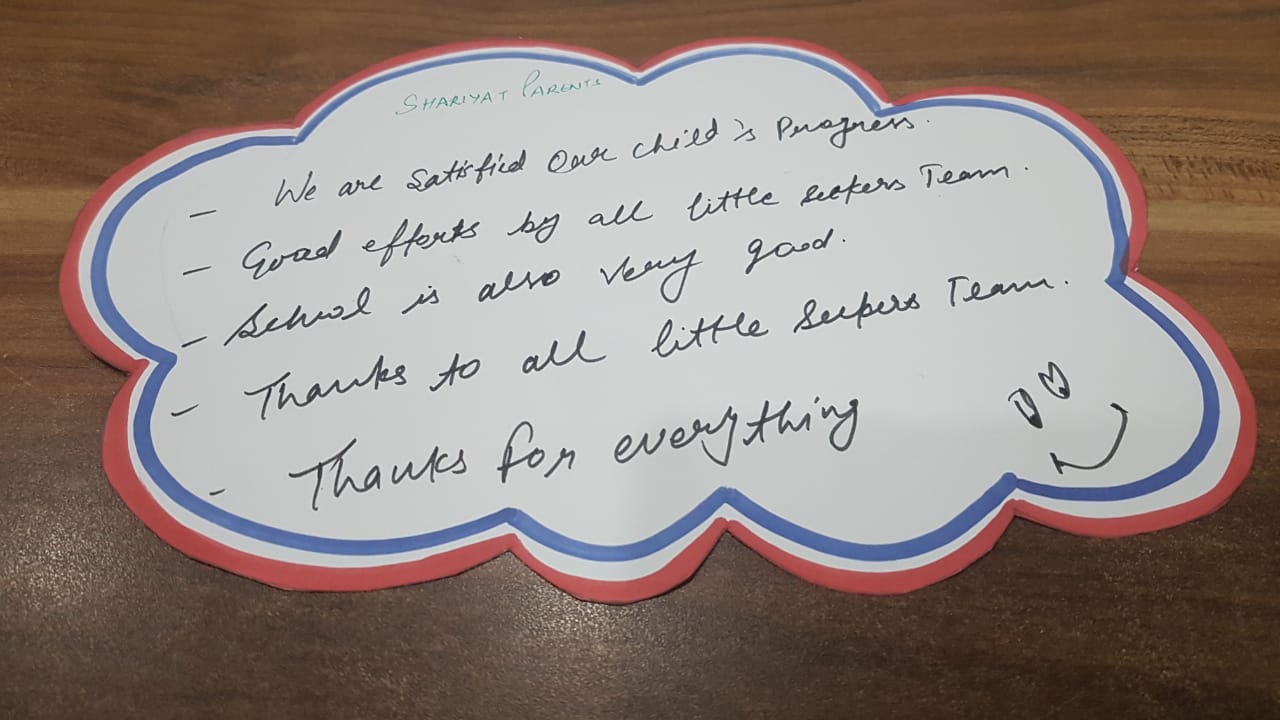 SHARIYAT PARENTS
- We are satisfied our child's Progress.
- Good efforts by all little seekers Team.
- School is also very good.
- Thanks to all little Seekers Team.
- Thanks for everything